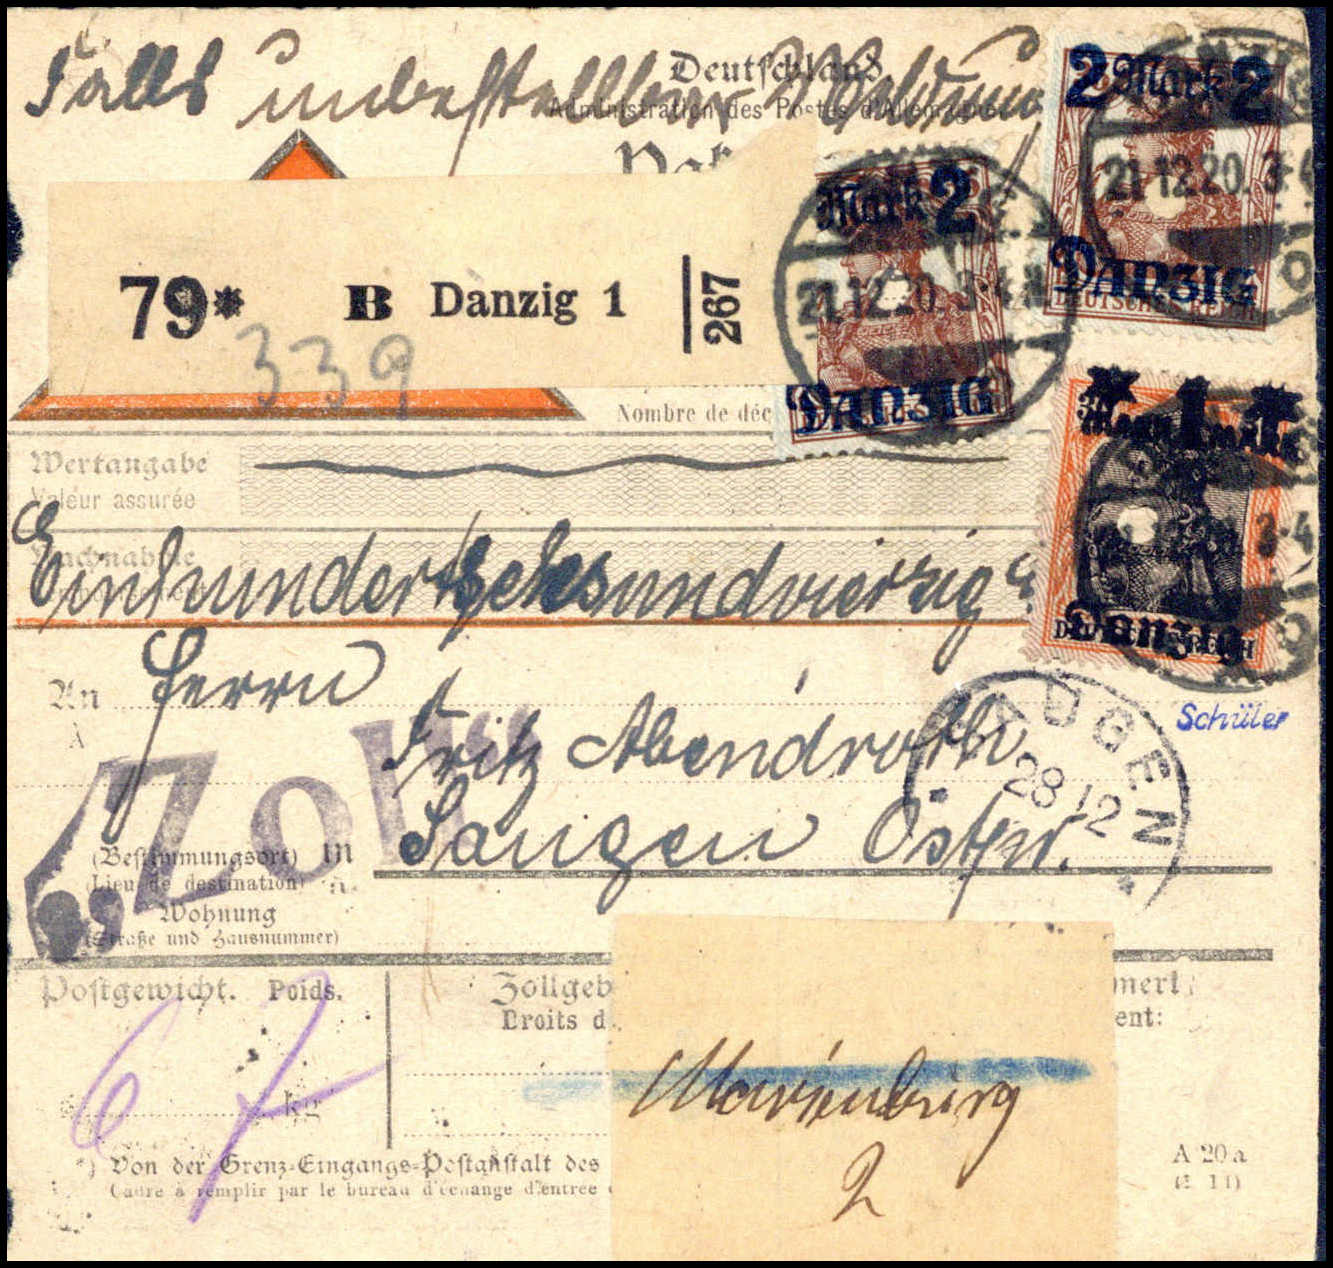 Falls unbestellbar
Deutschland.
Administration des Postes d'Allemagne.
2 Mark 2
21.12.20. 3-4
DANZIG
DEUTSCHES REICH
Mark 2
21.12.20. 3-4 N
DANZIG
79* B Danzig 1 267
339
Nombre de déc
* 1 *
Mark Mark
3-4
Danzig
DEUTSCHES REICH
Wertangabe
Valeur assurée
Nachnahme
Einhundertsechsundvierzig
An Herrn
À
Schüler
SAUGEN
28 12
Fritz Abendroth
"Zoll"
(Bestimmungsort) in Saugen Ostpr.
(Lieu de destination) à
Wohnung
(Straße und Hausnummer)
Postgewicht. Poids.
Zollgeb
Droits d
merk
ent:
6 7
kg
Marienburg
2
*) Von der Grenz-Eingangs-Postanstalt des
Cadre à remplir par le bureau d'échange d'entrée
A 20a